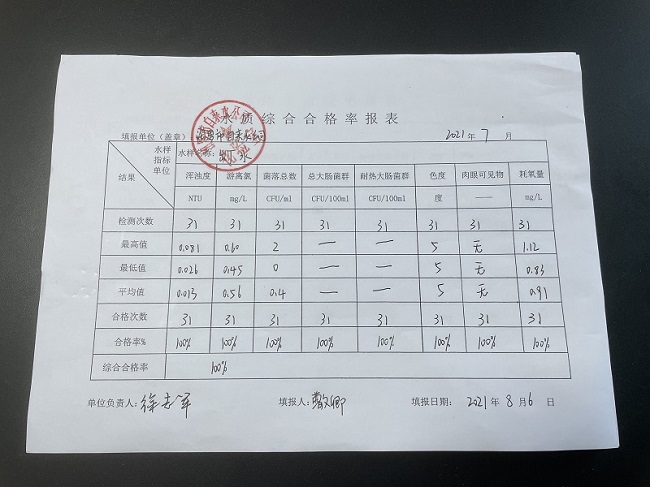 水质综合合格率报表
填报单位（盖章）： 自来水公司 2021年 7 月
水样 指标 单位 结果 水样名称：出厂水
浑浊度 游离氯 菌落总数 总大肠菌群 耐热大肠菌群 色度 肉眼可见物 耗氧量
NTU mg/L CFU/ml CFU/100ml CFU/100ml 度 —— mg/L
检测次数 31 31 31 31 31 31 31 31
最高值 0.081 0.60 2 — — 5 无 1.12
最低值 0.026 0.45 0 — — 5 无 0.83
平均值 0.013 0.56 0.4 — — 5 无 0.91
合格次数 31 31 31 31 31 31 31 31
合格率% 100% 100% 100% 100% 100% 100% 100% 100%
综合合格率 100%
单位负责人：徐志军 填报人： 填报日期： 2021 年 8 月 6 日